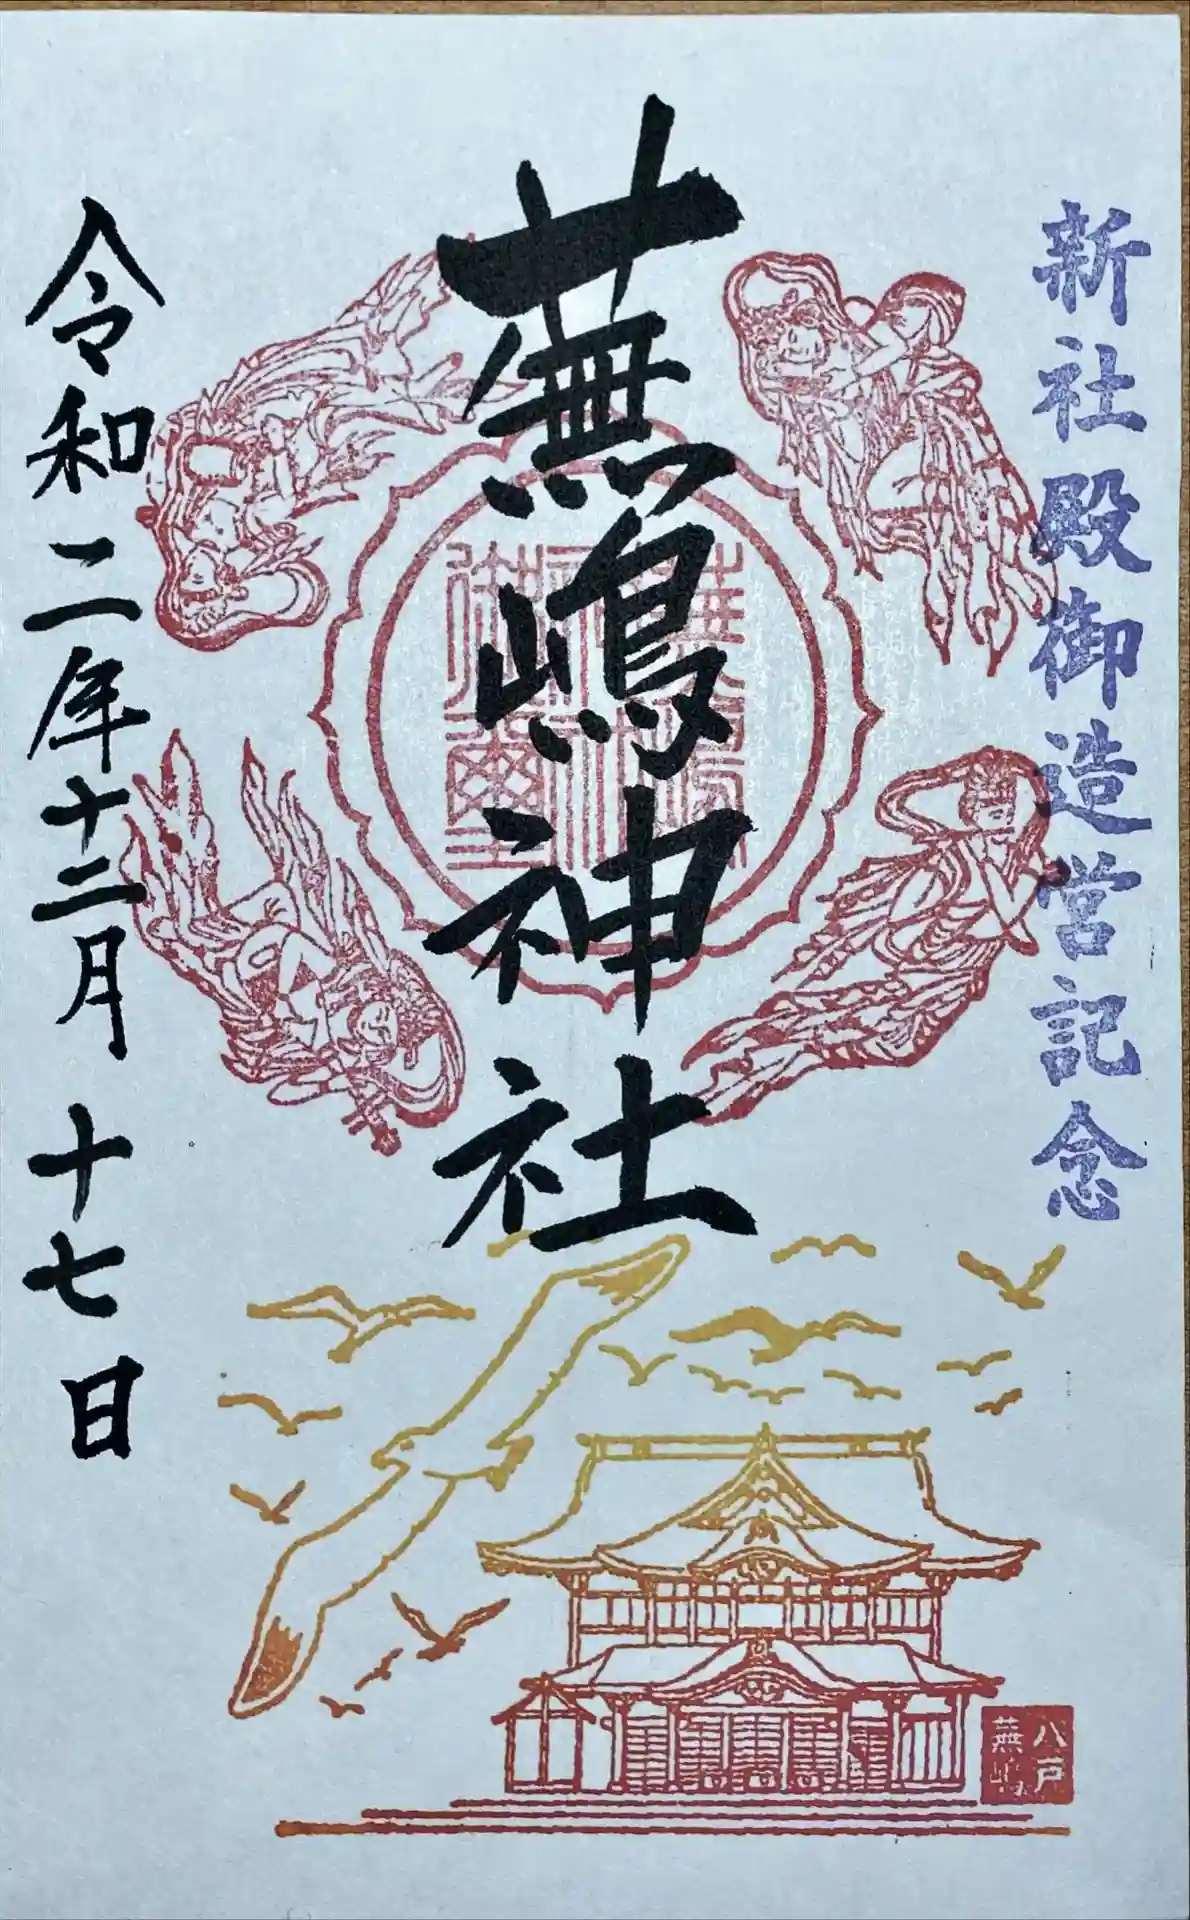 新社殿御造営記念
蕪嶋神社
令和二年十二月十七日
八戸
蕪嶋